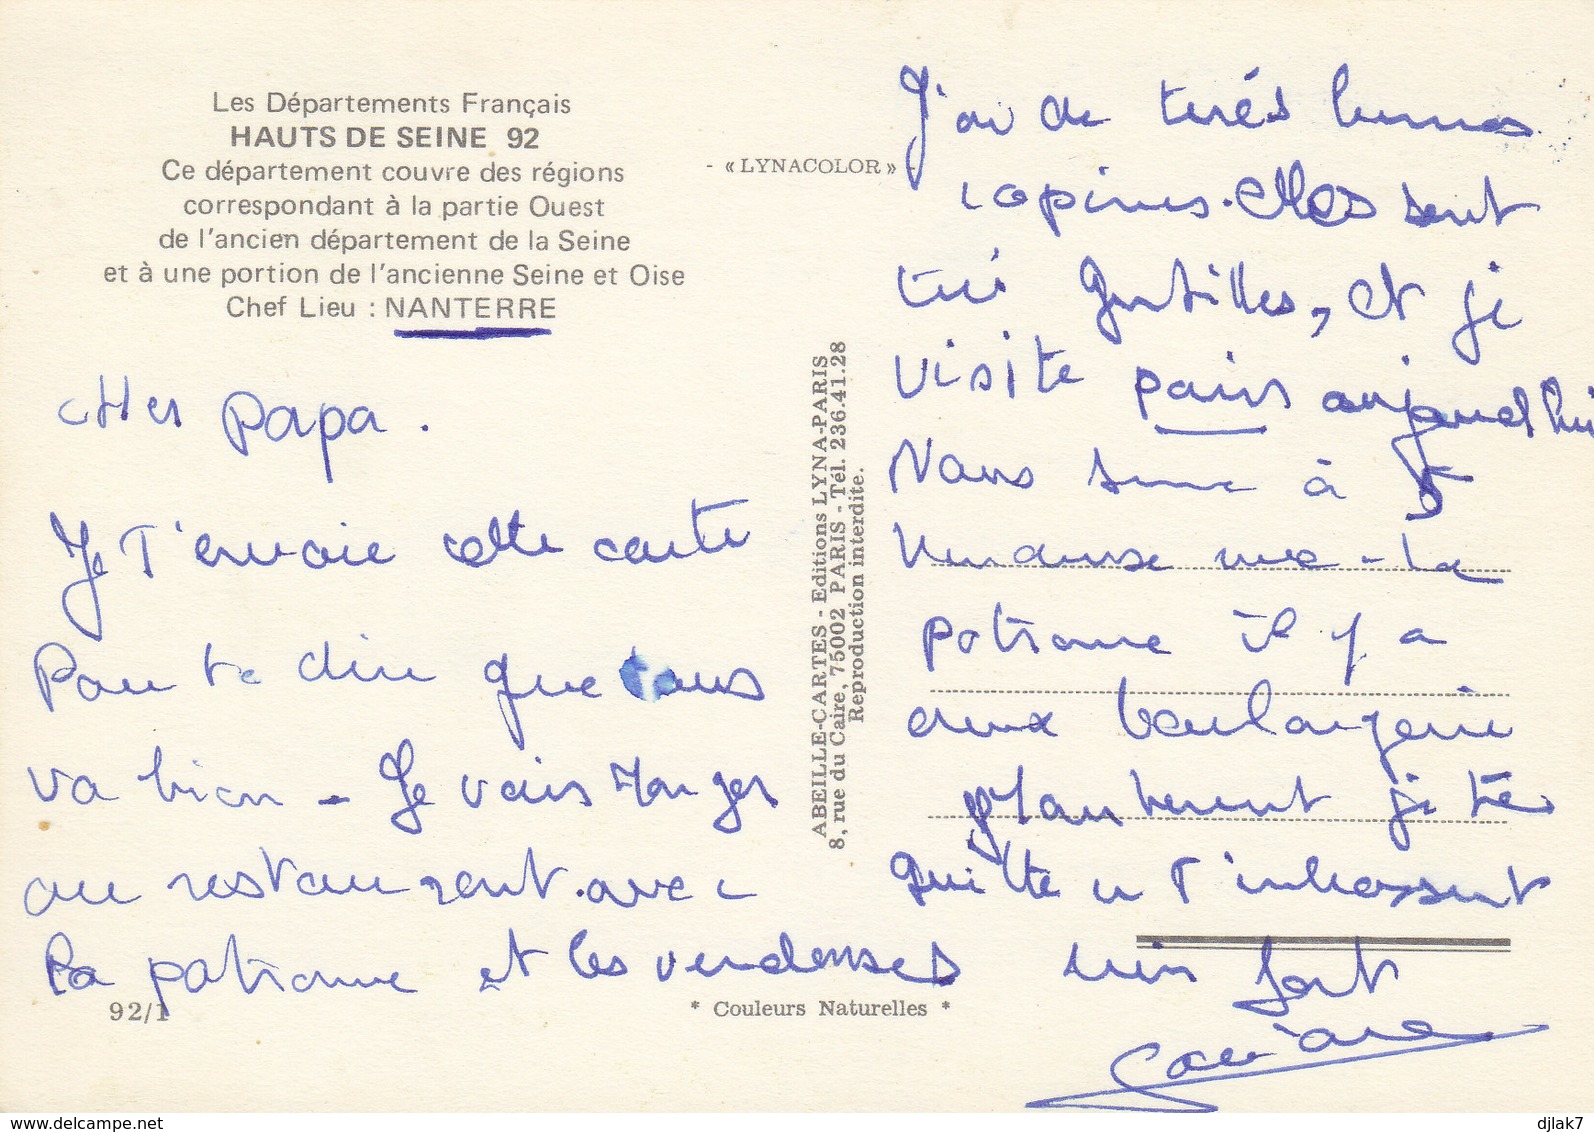 Les Départements Français
HAUTS DE SEINE 92
Ce département couvre des régions
correspondant à la partie Ouest
de l'ancien département de la Seine
et à une portion de l'ancienne Seine et Oise
Chef Lieu : NANTERRE
cher papa.
Je t'envoie cette carte
Pour te dire que tous
va bien - Je vais manger
au restaurent. avec
la patronne et les vendeuses
92/1
- « LYNACOLOR » -
ABEILLE-CARTES - Editions LYNA-PARIS
8, rue du Caire, 75002 PARIS - Tél. 236.41.28
Reproduction interdite.
* Couleurs Naturelles *
J'ai de
copines. elles sont
très gentilles, et je
visite paris aujourd'hui
Nous somme à 5
vendeuse - la
patronne il y a
deux boulangerie
je te
quitte t'
fort
djlak7